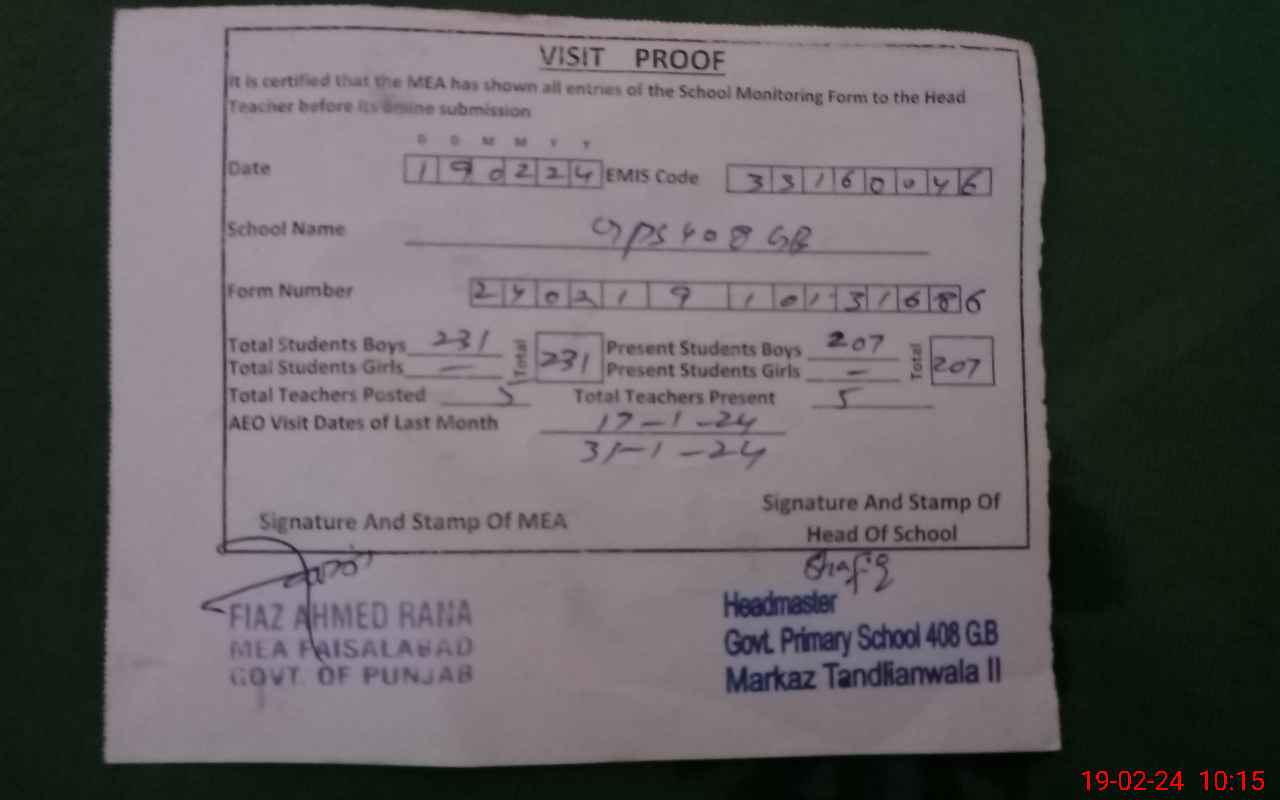 VISIT PROOF
It is certified that the MEA has shown all entries of the School Monitoring Form to the Head
Teacher before its online submission
D D M M Y Y
Date 190224 EMIS Code 33160046
School Name GPS 408 GB
Form Number 240219 101 31686
Total Students Boys 231 Total 231 Present Students Boys 207 Total 207
Total Students Girls — Present Students Girls —
Total Teachers Posted 5 Total Teachers Present 5
AEO Visit Dates of Last Month 17-1-24
31-1-24
Signature And Stamp Of MEA
Signature And Stamp Of
Head Of School
Shafiq
FIAZ AHMED RANA
MEA FAISALABAD
GOVT. OF PUNJAB
Headmaster
Govt. Primary School 408 G.B
Markaz Tandlianwala II
19-02-24 10:15